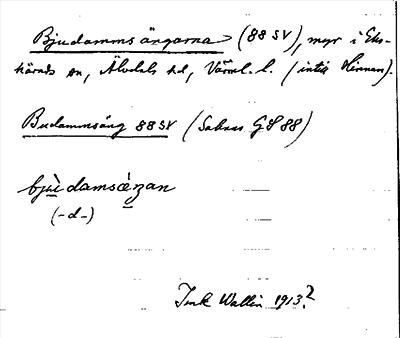 Bjudammsängarna (88 SV), myr i Eks-
härads sn, Älvdals hd, Värml. l. (intill Hinnan).
Budammsäng 88 SV (Saknas GS 88)
bjùdamsæ̀ŋan
(-d-)
Ink Wallin 1913?